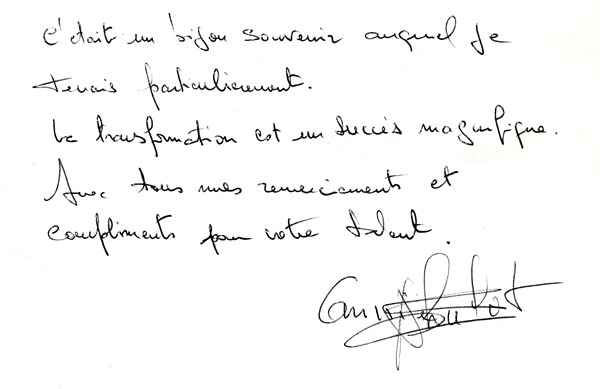 C'était un bijou souvenir auquel je
tenais particulièrement.
La transformation est un succès magnifique.
Avec tous mes remerciements et
compliments pour votre talent.